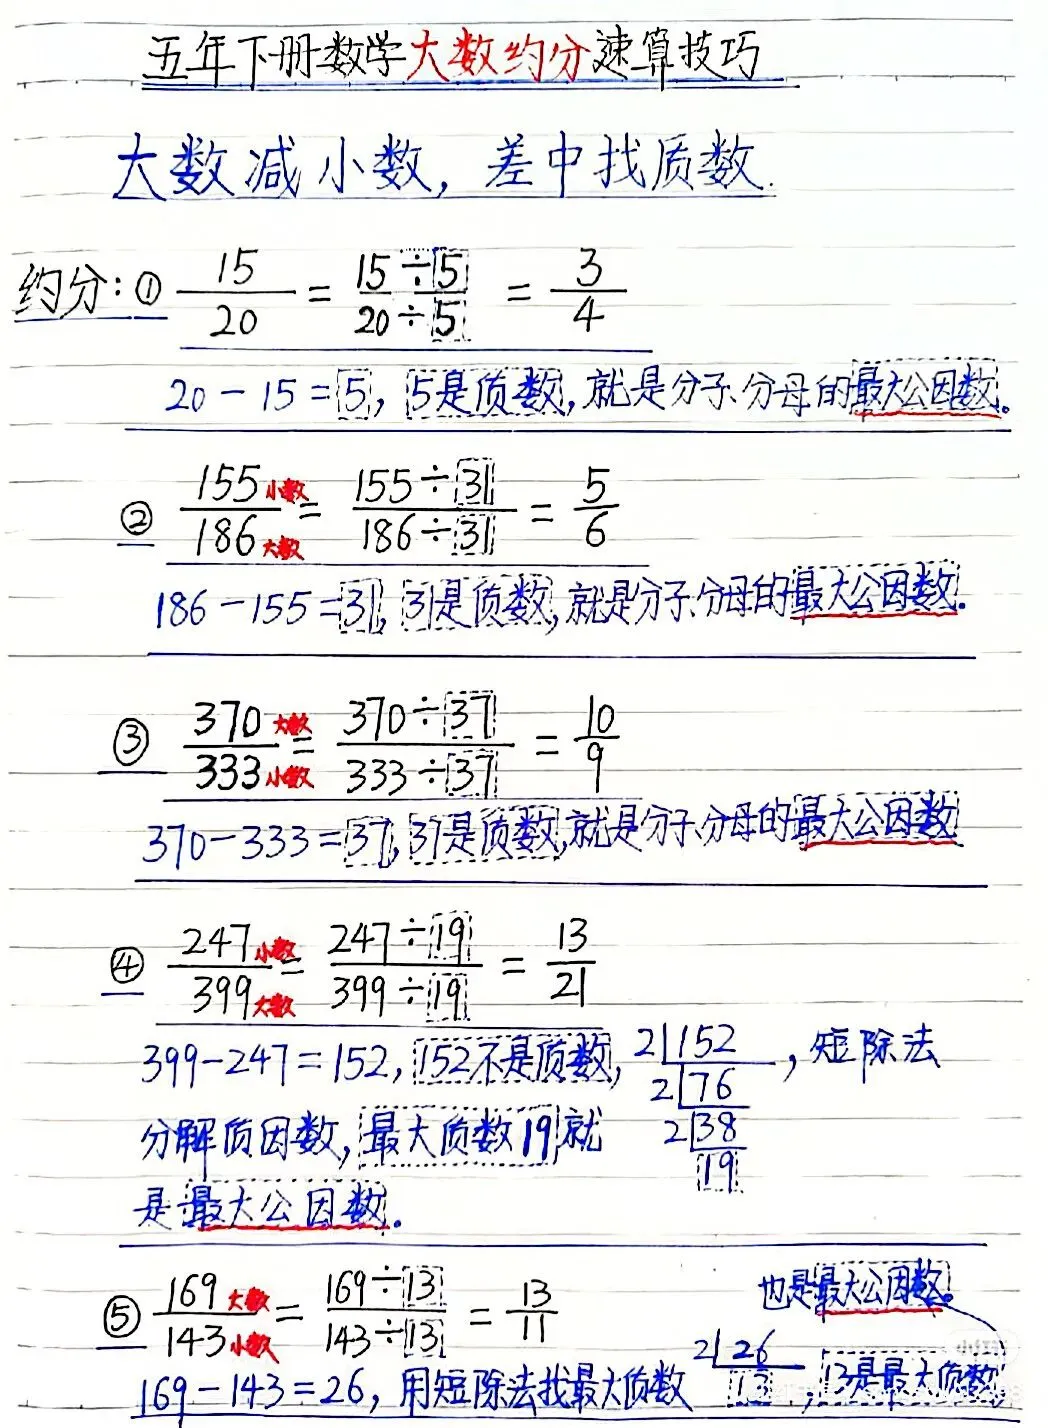 五年下册数学大数约分速算技巧
大数减小数，差中找质数.
约分：① 15/20 = 15÷5/20÷5 = 3/4
20－15=5，5是质数，就是分子、分母的最大公因数。
② 155小数/186大数 = 155÷31/186÷31 = 5/6
186－155=31，31是质数，就是分子、分母的最大公因数.
③ 370大数/333小数 = 370÷37/333÷37 = 10/9
370－333=37，37是质数，就是分子、分母的最大公因数
④ 247小数/399大数 = 247÷19/399÷19 = 13/21
399－247=152，152不是质数，2|152，短除法
2|76
分解质因数，最大质数19就 2|38
19
是最大公因数。
也是最大公因数。
⑤ 169大数/143小数 = 169÷13/143÷13 = 13/11
169－143=26，用短除法找最大质数 2|26，13是最大质数
13